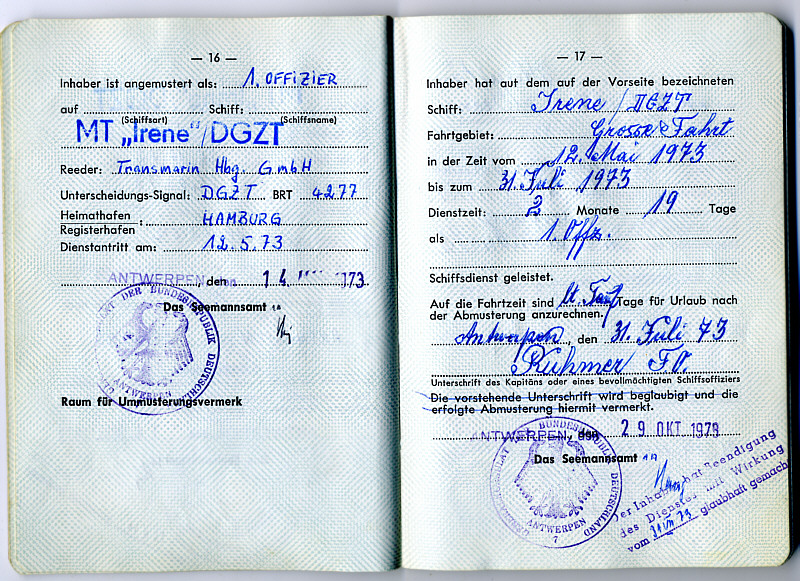 — 16 —
Inhaber ist angemustert als: 1. OFFIZIER
auf (Schiffsart) Schiff: (Schiffsname)
MT „Irene“/DGZT
Reeder: Transmarin Hbg. GmbH
Unterscheidungs-Signal: DGZT BRT 4277
Heimathafen
Registerhafen : HAMBURG
Dienstantritt am: 12.5.73
ANTWERPEN, den 14 1973
Das Seemannsamt
DER BUNDESREPUBLIK DEUTSCHLAND
ANTWERPEN
Raum für Ummusterungsvermerk
— 17 —
Inhaber hat auf dem auf der Vorseite bezeichneten
Schiff: Irene / DGZT
Fahrtgebiet: Grosse Fahrt
in der Zeit vom 12. Mai 1973
bis zum 31. Juli 1973
Dienstzeit: 2 Monate 19 Tage
als 1. Offz.
Schiffsdienst geleistet.
Auf die Fahrtzeit sind lt. Tarif Tage für Urlaub nach
der Abmusterung anzurechnen.
Antwerpen, den 31. Juli 73
Ruhmer FO.
Unterschrift des Kapitäns oder eines bevollmächtigten Schiffsoffiziers
Die vorstehende Unterschrift wird beglaubigt und die
erfolgte Abmusterung hiermit vermerkt.
ANTWERPEN, den 29 OKT 1973
Das Seemannsamt
GENERALKONSULAT DER BUNDESREPUBLIK DEUTSCHLAND
ANTWERPEN
7
Der Inhaber hat Beendigung
des Dienstes mit Wirkung
vom 31/VII 73 glaubhaft gemacht